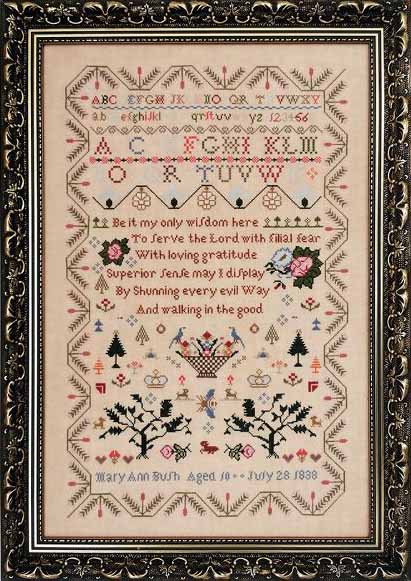 ABC EFGH JK IO QR T VWXY
ab efghijkl qrstuv w yz 123456
A C FGHI KLM
O R TUVW
Be it my only wisdom here
To serve the Lord with filial fear
With loving gratitude
Superior sense may I display
By Shunning every evil Way
And walking in the good
Mary Ann Bush Aged 10 July 28 1838